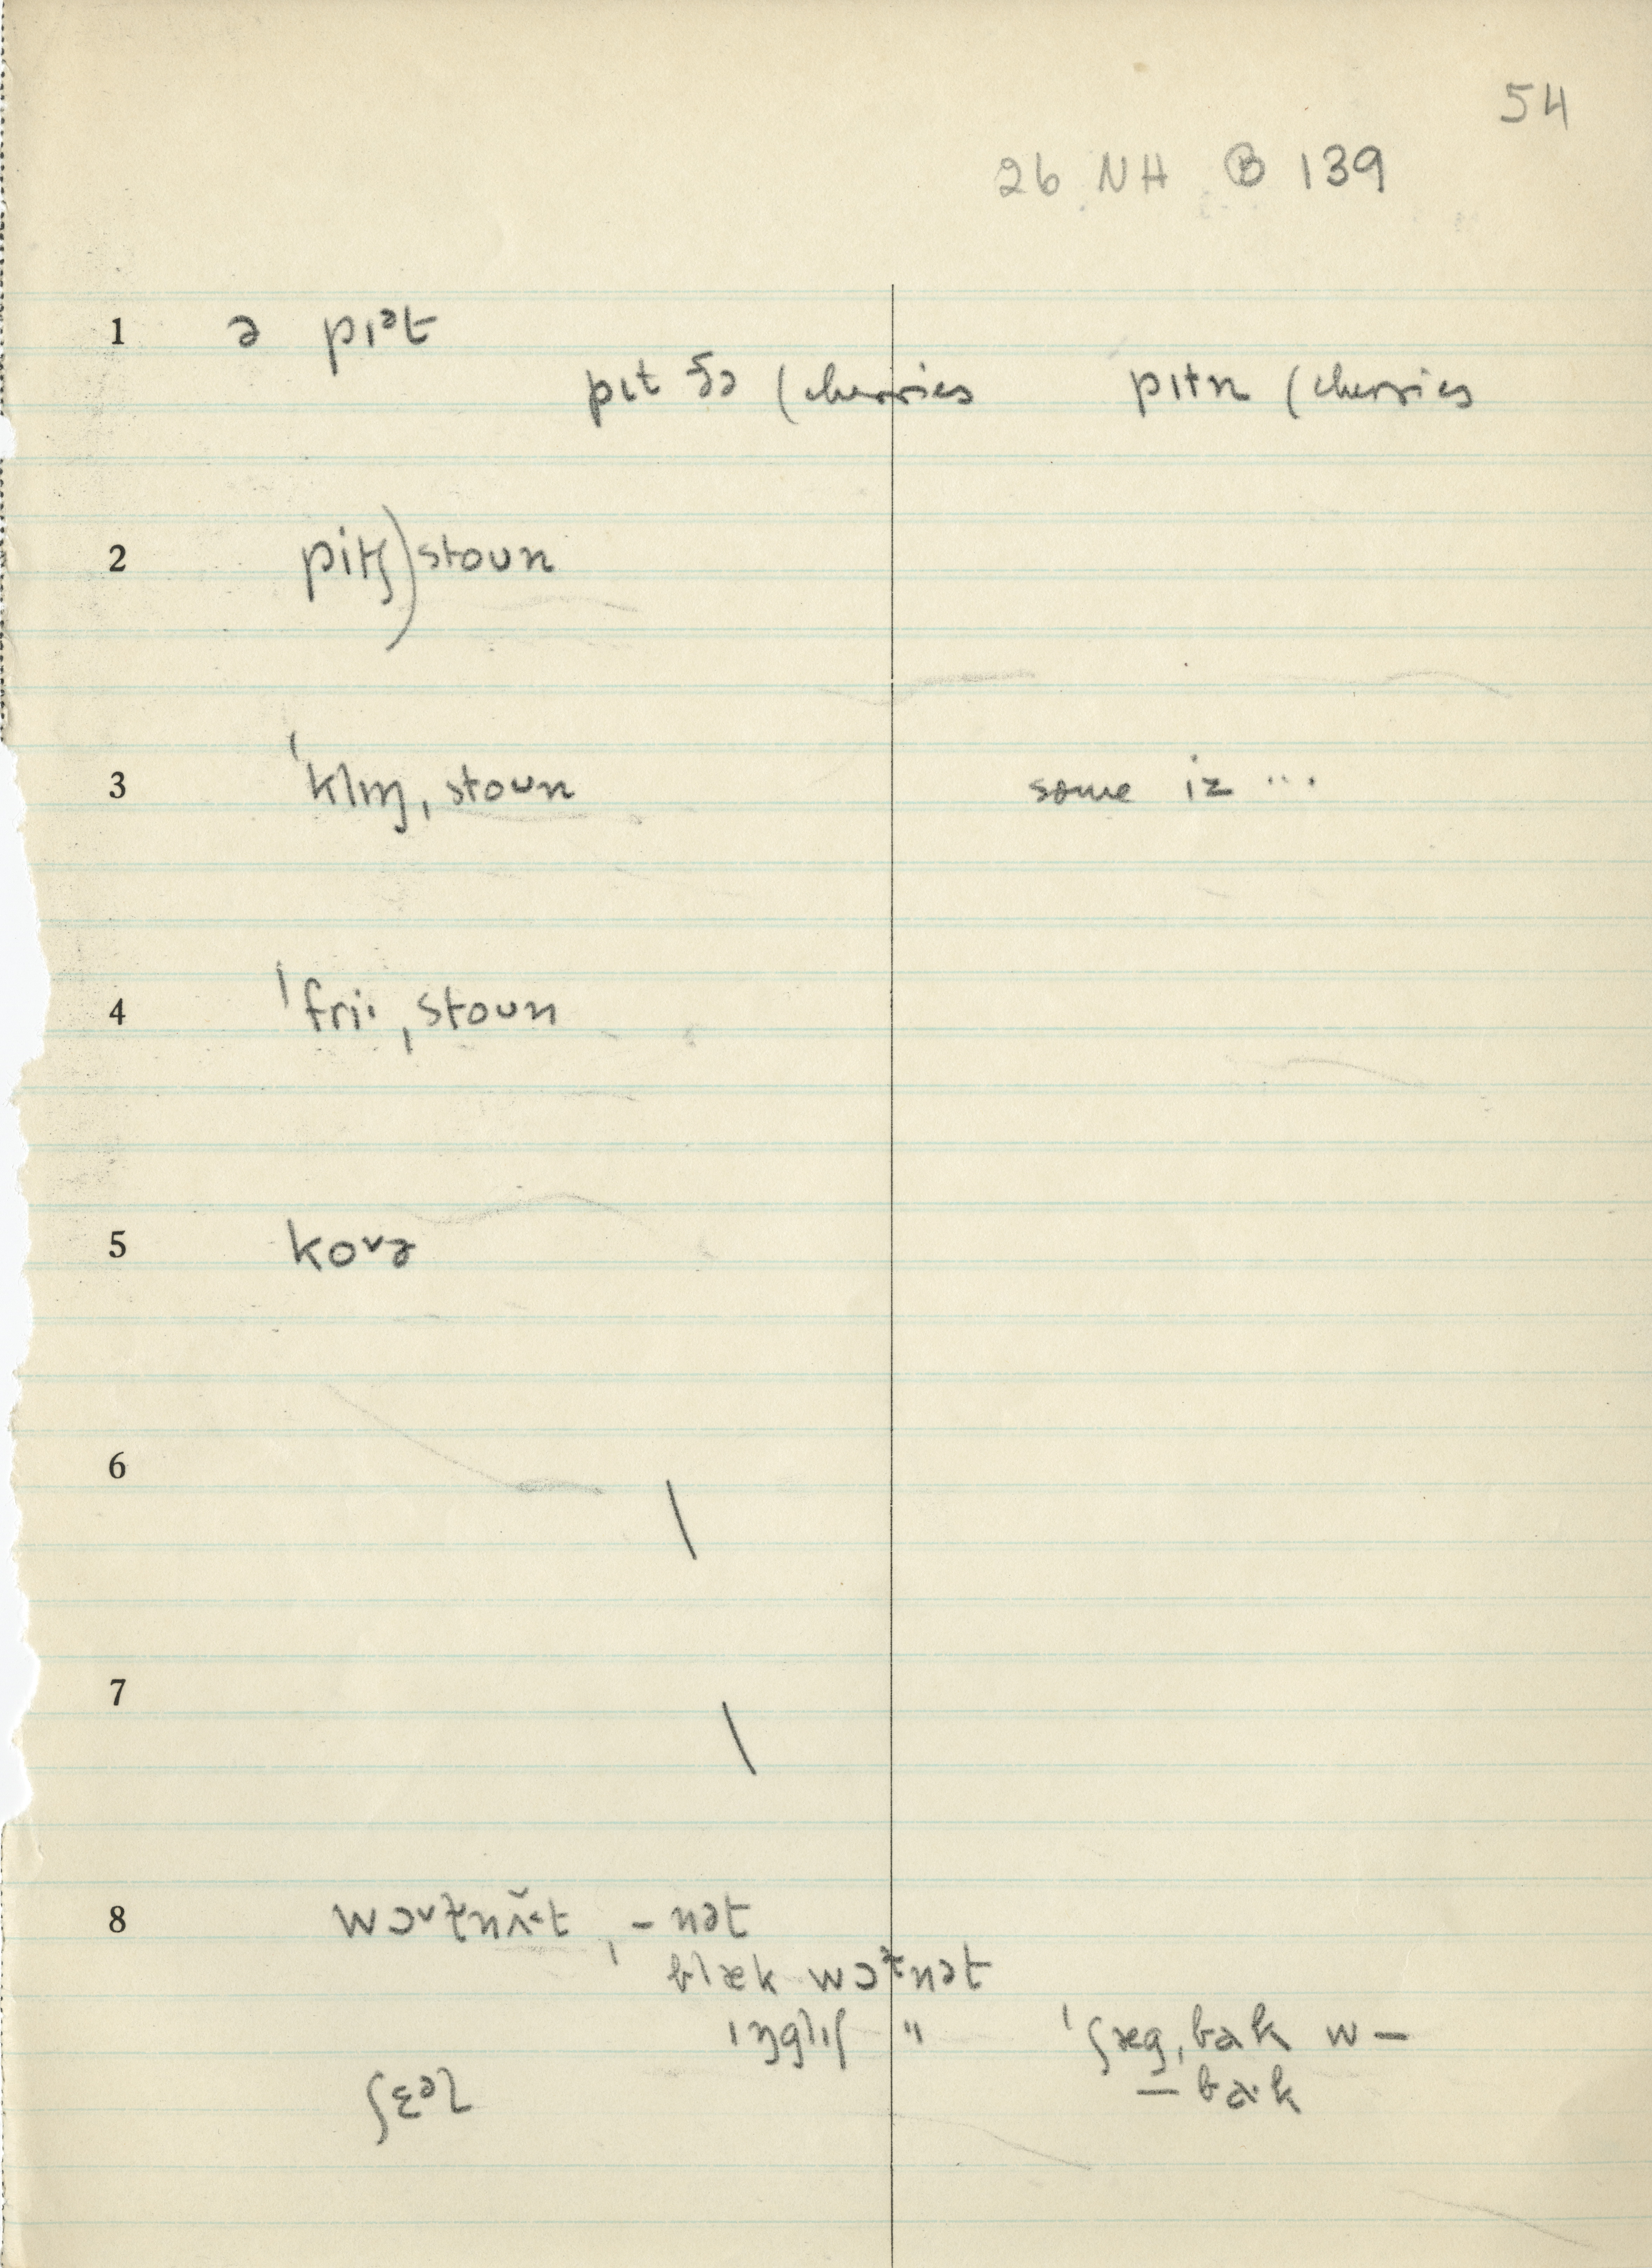 54
26 NH Ⓑ 139
1 ə pɪᵊt
pɪt ðə (cherries pɪtn (cherries
2 pitʃ) stoun
3 ˈklɪŋˌstoun some iz ...
4 ˈfriˑˌstoun
5 koᵛə
6 \
7 \
8 wɔᵛɫnʌ̆˂t, -nət
blæk wɔɫnət
ɪŋglɪʃ " ˈʃægˌbak w—
ʃɛᵊl — baˑk